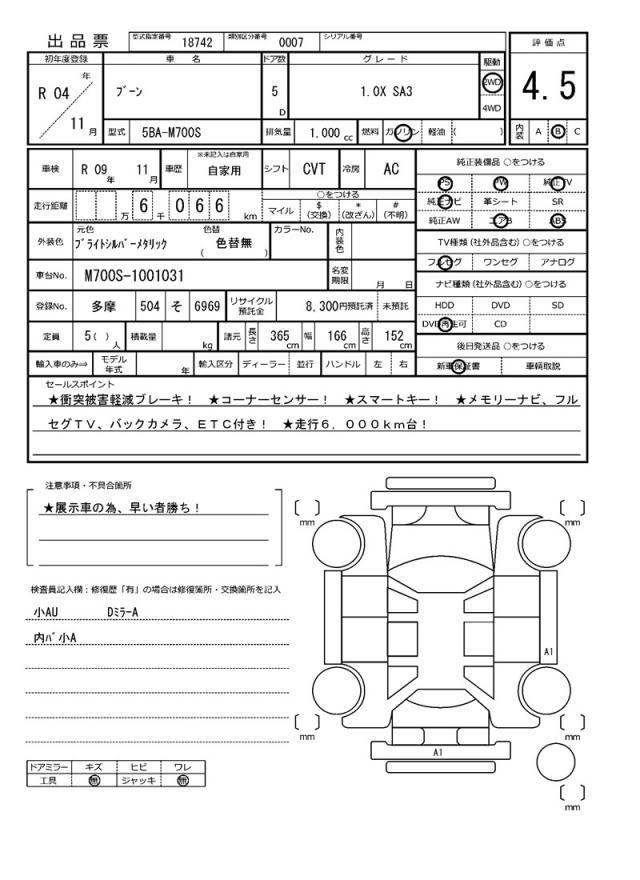 出品票 型式指定番号 18742 類別区分番号 0007 シリアル番号
評価点
4.5
内装 A B C
初年度登録 車名 ドア数 グレード 駆動
R 04 年 11 月
ブーン 5 D 1.0X SA3 2WD 4WD
型式 5BA-M700S 排気量 1.000 cc 燃料 ガソリン 軽油 ( )
車検 R 09 年 11 月 車歴 ※未記入は自家用 自家用 シフト CVT 冷房 AC
走行距離 万 6 千 0 6 6 km
○をつける
マイル $ (交換) * (改ざん) # (不明)
外装色 元色 ブライトシルバーメタリック 色替 ( 色替無 ) カラーNo. 内装色
車台No. M700S-1001031 名変期限 月 日
登録No. 多摩 504 そ 6969 リサイクル預託金 8,300円預託済 未預託
定員 5( ) 人 積載量 kg 諸元 長さ 365 cm 幅 166 cm 高さ 152 cm
輸入車のみ⇒ モデル年式 年 輸入区分 ディーラー 並行 ハンドル 左 右
純正装備品 ○をつける
PS PW 純正TV
純正ナビ 革シート SR
純正AW エアB ABS
TV種類(社外品含む)○をつける
フルセグ ワンセグ アナログ
ナビ種類(社外品含む)○をつける
HDD DVD SD
DVD再生可 CD
後日発送品 ○をつける
新車保証書 車輌取説
セールスポイント
★衝突被害軽減ブレーキ! ★コーナーセンサー! ★スマートキー! ★メモリーナビ、フル
セグTV、バックカメラ、ETC付き! ★走行6,000km台!
注意事項・不具合箇所
★展示車の為、早い者勝ち!
検査員記入欄:修復歴「有」の場合は修復箇所・交換箇所を記入
小AU DミラーA
内バ小A
ドアミラー キズ ヒビ ワレ
工具 無 ジャッキ 無
[ ] mm
[ ] mm
A1
[ ] mm
[ ] mm
A1
[ ] mm